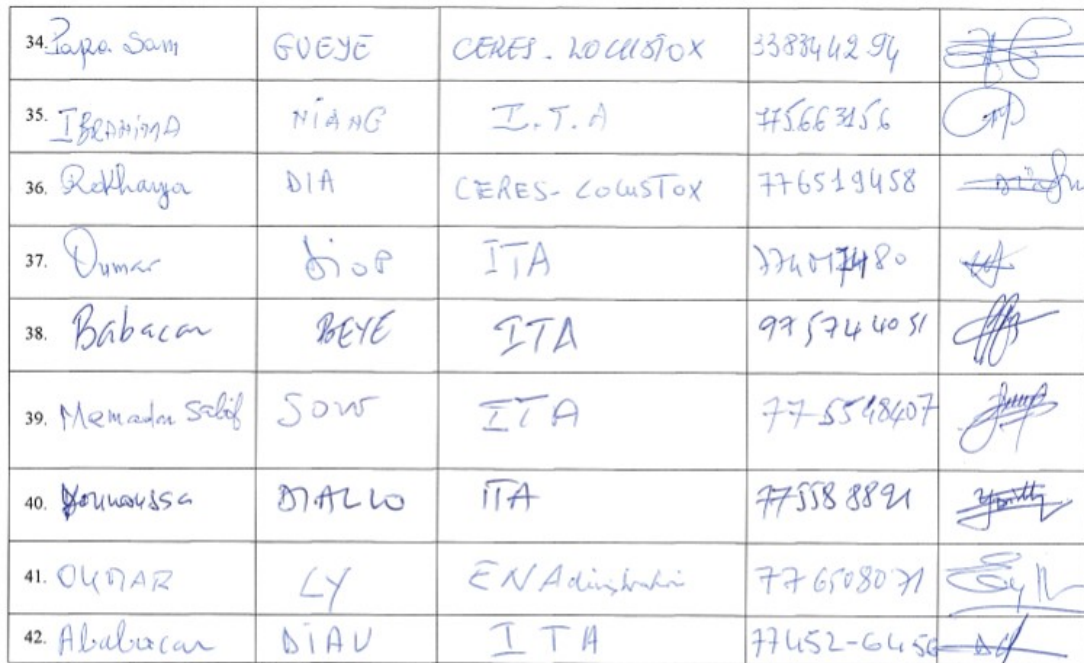 34. Papa Sam GUEYE CERES-LOCUSTOX 338344294
35. IBRAHIMA NIANG I.T.A 775663156
36. Rokhaya DIA CERES-LOCUSTOX 776519458
37. Oumar DIOP ITA
38. Babacar BEYE ITA 975744051
39. Mamadou Salif SOW ITA 775548407
40. Younoussa DIALLO ITA 775588891
41. OUMAR LY 776508071
42. Ababacar DIAW ITA 77452-6456